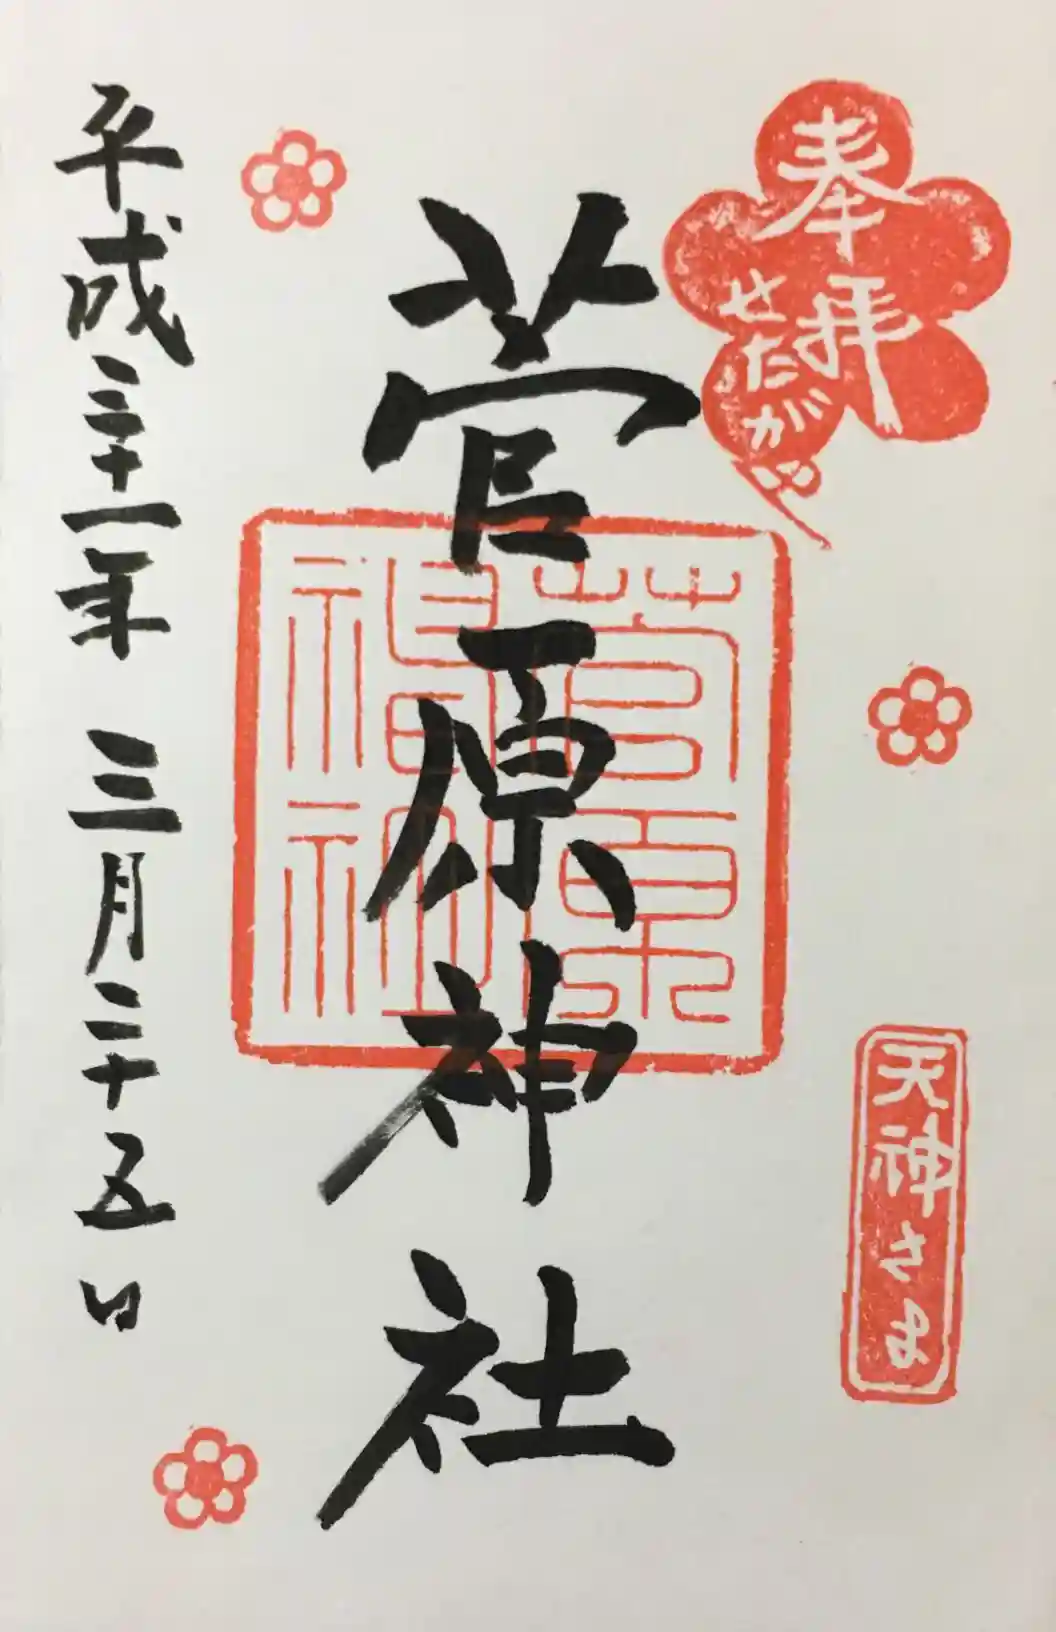 奉拝
せたがや
天神さま
菅原神社
菅原
神社
平成三十一年 三月二十五日